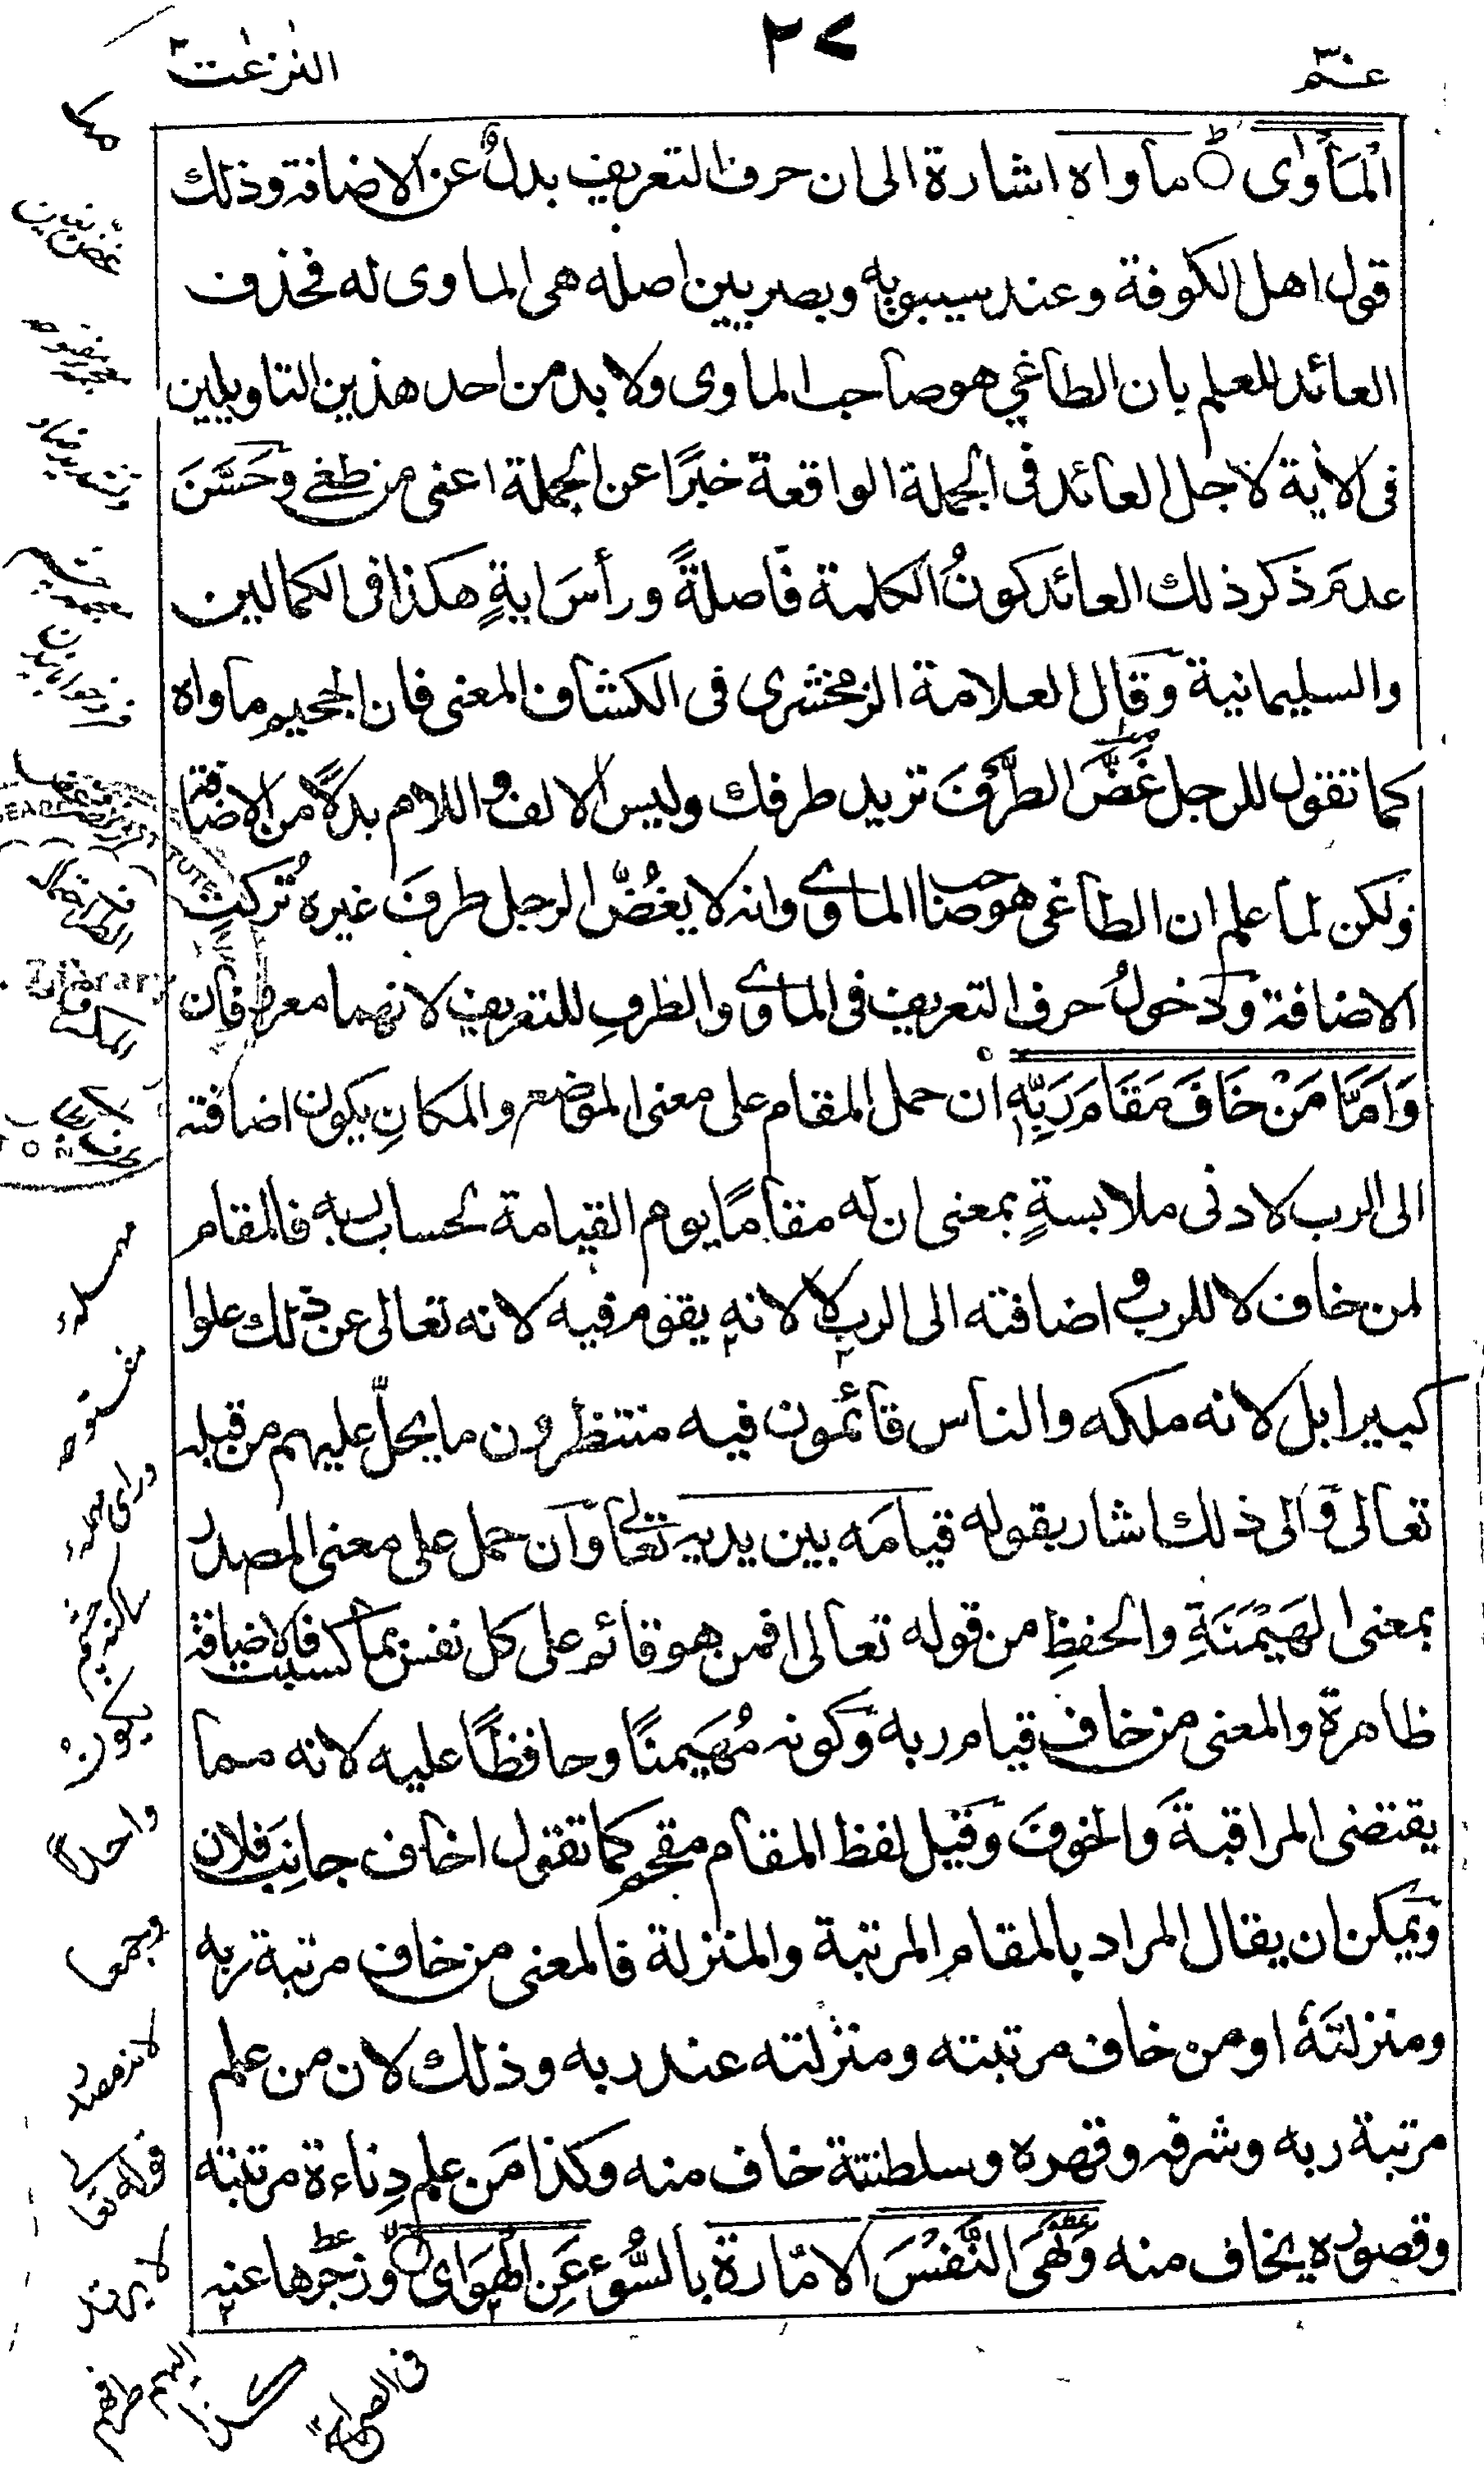 عـم ٣٠
٢٧
النزعت
المأوى ماواه اشارة الى ان حرف التعريف بدل عن الاضافة وذلك
قول اهل الكوفة وعند سيبويه وبصريين اصله هى الماوى له فحذف
العائد للعلم بان الطاغى هو صاحب الماوى ولا بد من احد هذين التاويلين
فى الاية لاجل العائد فى الجملة الواقعة خبرًا عن الجملة اعنى من طغى وحَسَّنَ
عدمَ ذكر ذلك العائد كونُ الكلمة فاصلةً ورأسَ ايةٍ هكذا فى الكمالين
والسليمانية وقال العلامة الزمخشرى فى الكشاف المعنى فان الجحيم ماواه
كما تقول للرجل غَضَّ الطَّرْفَ تريد طرفك وليس الالف واللام بدلًا من الاضافة
ولكن لما علم ان الطاغى هو صاحب الماوى وانه لا يغُضُّ الرجل طرفَ غيره تُركت
الاضافة ودخولُ حرف التعريف فى الماوى والطرفِ للتعريف لانهما معروفان
وَاَمَّا مَنْ خَافَ مَقَامَ رَبِّهٖ ان حمل المقام على معنى الموضع والمكانِ يكون اضافته
الى الرب لادنى ملابسةٍ بمعنى ان له مقامًا يوم القيامة لحساب ربه فالمقام
لمن خاف لا للرب و اضافته الى الرب لا لانه يقوم فيه لانه تعالى عن ذلك علوا
كبيرا بل لانه ملكه والناس قائمون فيه منتظرون ما يحلّ عليهم من قبله
تعالى والى ذلك اشار بقوله قيامَه بين يديه تعالى وان حمل على معنى المصدر
بمعنى الهَيْمَنَةِ والحفظِ من قوله تعالى افمن هو قائم على كل نفس بما كسبت فالاضافة
ظاهرة والمعنى من خاف قيام ربه وكونه مُهَيمنًا وحافظًا عليه لانه مما
يقتضى المراقبةَ والخوفَ وقيل لفظ المقام مقحم كما تقول اخاف جانِبَ فلان
ويمكن ان يقال المراد بالمقام المرتبة والمنزلة فالمعنى من خاف مرتبة ربه
ومنزلتَه او من خاف مرتبته ومنزلته عند ربه وذلك لان من علم
مرتبة ربه وشرفه وقهره وسلطنتة خاف منه وكذا مَن علم دِناءة مرتبته
وقصوره يخاف منه وَنَهَى النَّفْسَ الامّارة بالسُّوْءِ عَنِ الْهَوٰى وزجرها عنه
مفتوحه
يكون
واحدًا
وجمعا
لانه مصدر
قوله تعالى
لا يرتد
اليهم طرفهم
كـذا
فى الصراح